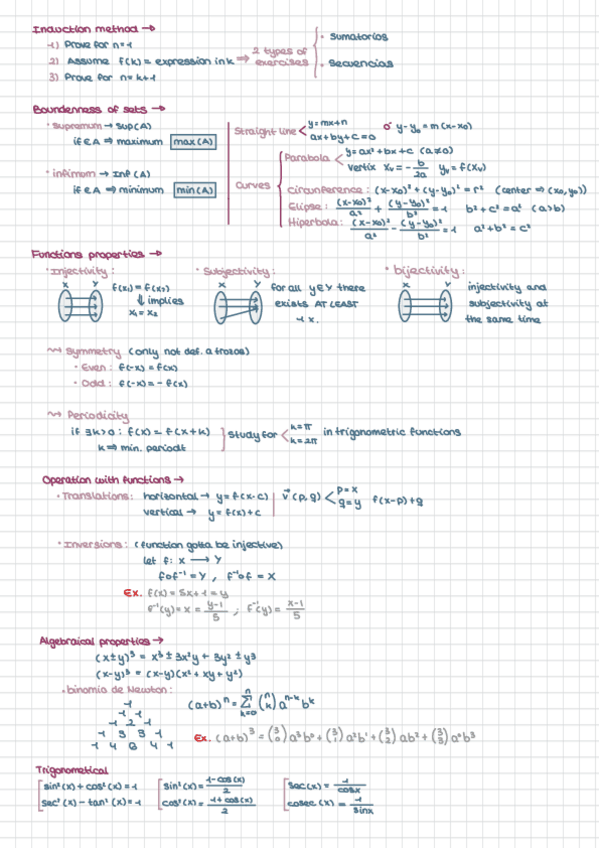 Induction method →
1) Prove for n=1
2) Assume f(k) = expression in k ⇒ 2 types of exercises { · sumatorios
· secuencias
3) Prove for n=k+1
Boundenness of sets →
· Supremum → Sup(A)
if ∈ A ⇒ maximum max(A)
· infimum → Inf(A)
if ∈ A ⇒ minimum min(A)
Straight line < y=mx+n o' y-y₀ = m(x-x₀)
ax+by+c=0
Curves
Parabola < y=ax²+bx+c (a≠0)
vertix xᵥ = -b/2a yᵥ = f(xᵥ)
Circunference: (x-x₀)² + (y-y₀)² = r² (center ⇒ (x₀,y₀))
Elipse: (x-x₀)²/a² + (y-y₀)²/b² = 1 b²+c²=a² (a>b)
Hiperbola: (x-x₀)²/a² - (y-y₀)²/b² = 1 a²+b²=c²
Functions properties →
· Injectivity: · Subjectivity: · bijectivity:
X Y f(x₁) = f(x₂)
⇓ implies
x₁ = x₂
X Y for all y∈Y there
exists AT LEAST
1 x.
X Y injectivity and
subjectivity at
the same time
⇝ Symmetry (only not def. a trozos)
· Even: f(-x) = f(x)
· Odd: f(-x) = -f(x)
⇝ Periodicity
if ∃k>0 : f(x) = f(x+k) } study for < k=π in trigonometric functions
k ⇒ min. periodt k=2π
Operation with functions →
· Translations: horizontal → y = f(x-c) | v⃗ (p,q) < p=x f(x-p)+q
vertical → y = f(x)+c q=y
· Inversions: (function gotta be injective)
let f: X ⟶ Y
f∘f⁻¹ = Y , f⁻¹∘f = X
Ex. f(x) = 5x+1 = y
f⁻¹(y) = x = y-1/5 ; f⁻¹(y) = x-1/5
Algebraical properties →
(x±y)³ = x³ ± 3x²y + 3y² ± y³
(x-y)³ = (x-y)(x² + xy + y²)
· binomio de Newton:
1
1 1
1 2 1
1 3 3 1
1 4 6 4 1
(a+b)ⁿ = Σ n k=0 (n k) aⁿ⁻ᵏ bᵏ
Ex. (a+b)³ = (3 0) a³b⁰ + (3 1) a²b¹ + (3 2) ab² + (3 3) a⁰b³
Trigonometrical
sin²(x) + cos²(x) = 1 sin²(x) = 1-cos(x)/2 sec(x) = 1/cosx
sec²(x) - tan²(x) = 1 cos²(x) = 1+cos(x)/2 cosec(x) = 1/sinx